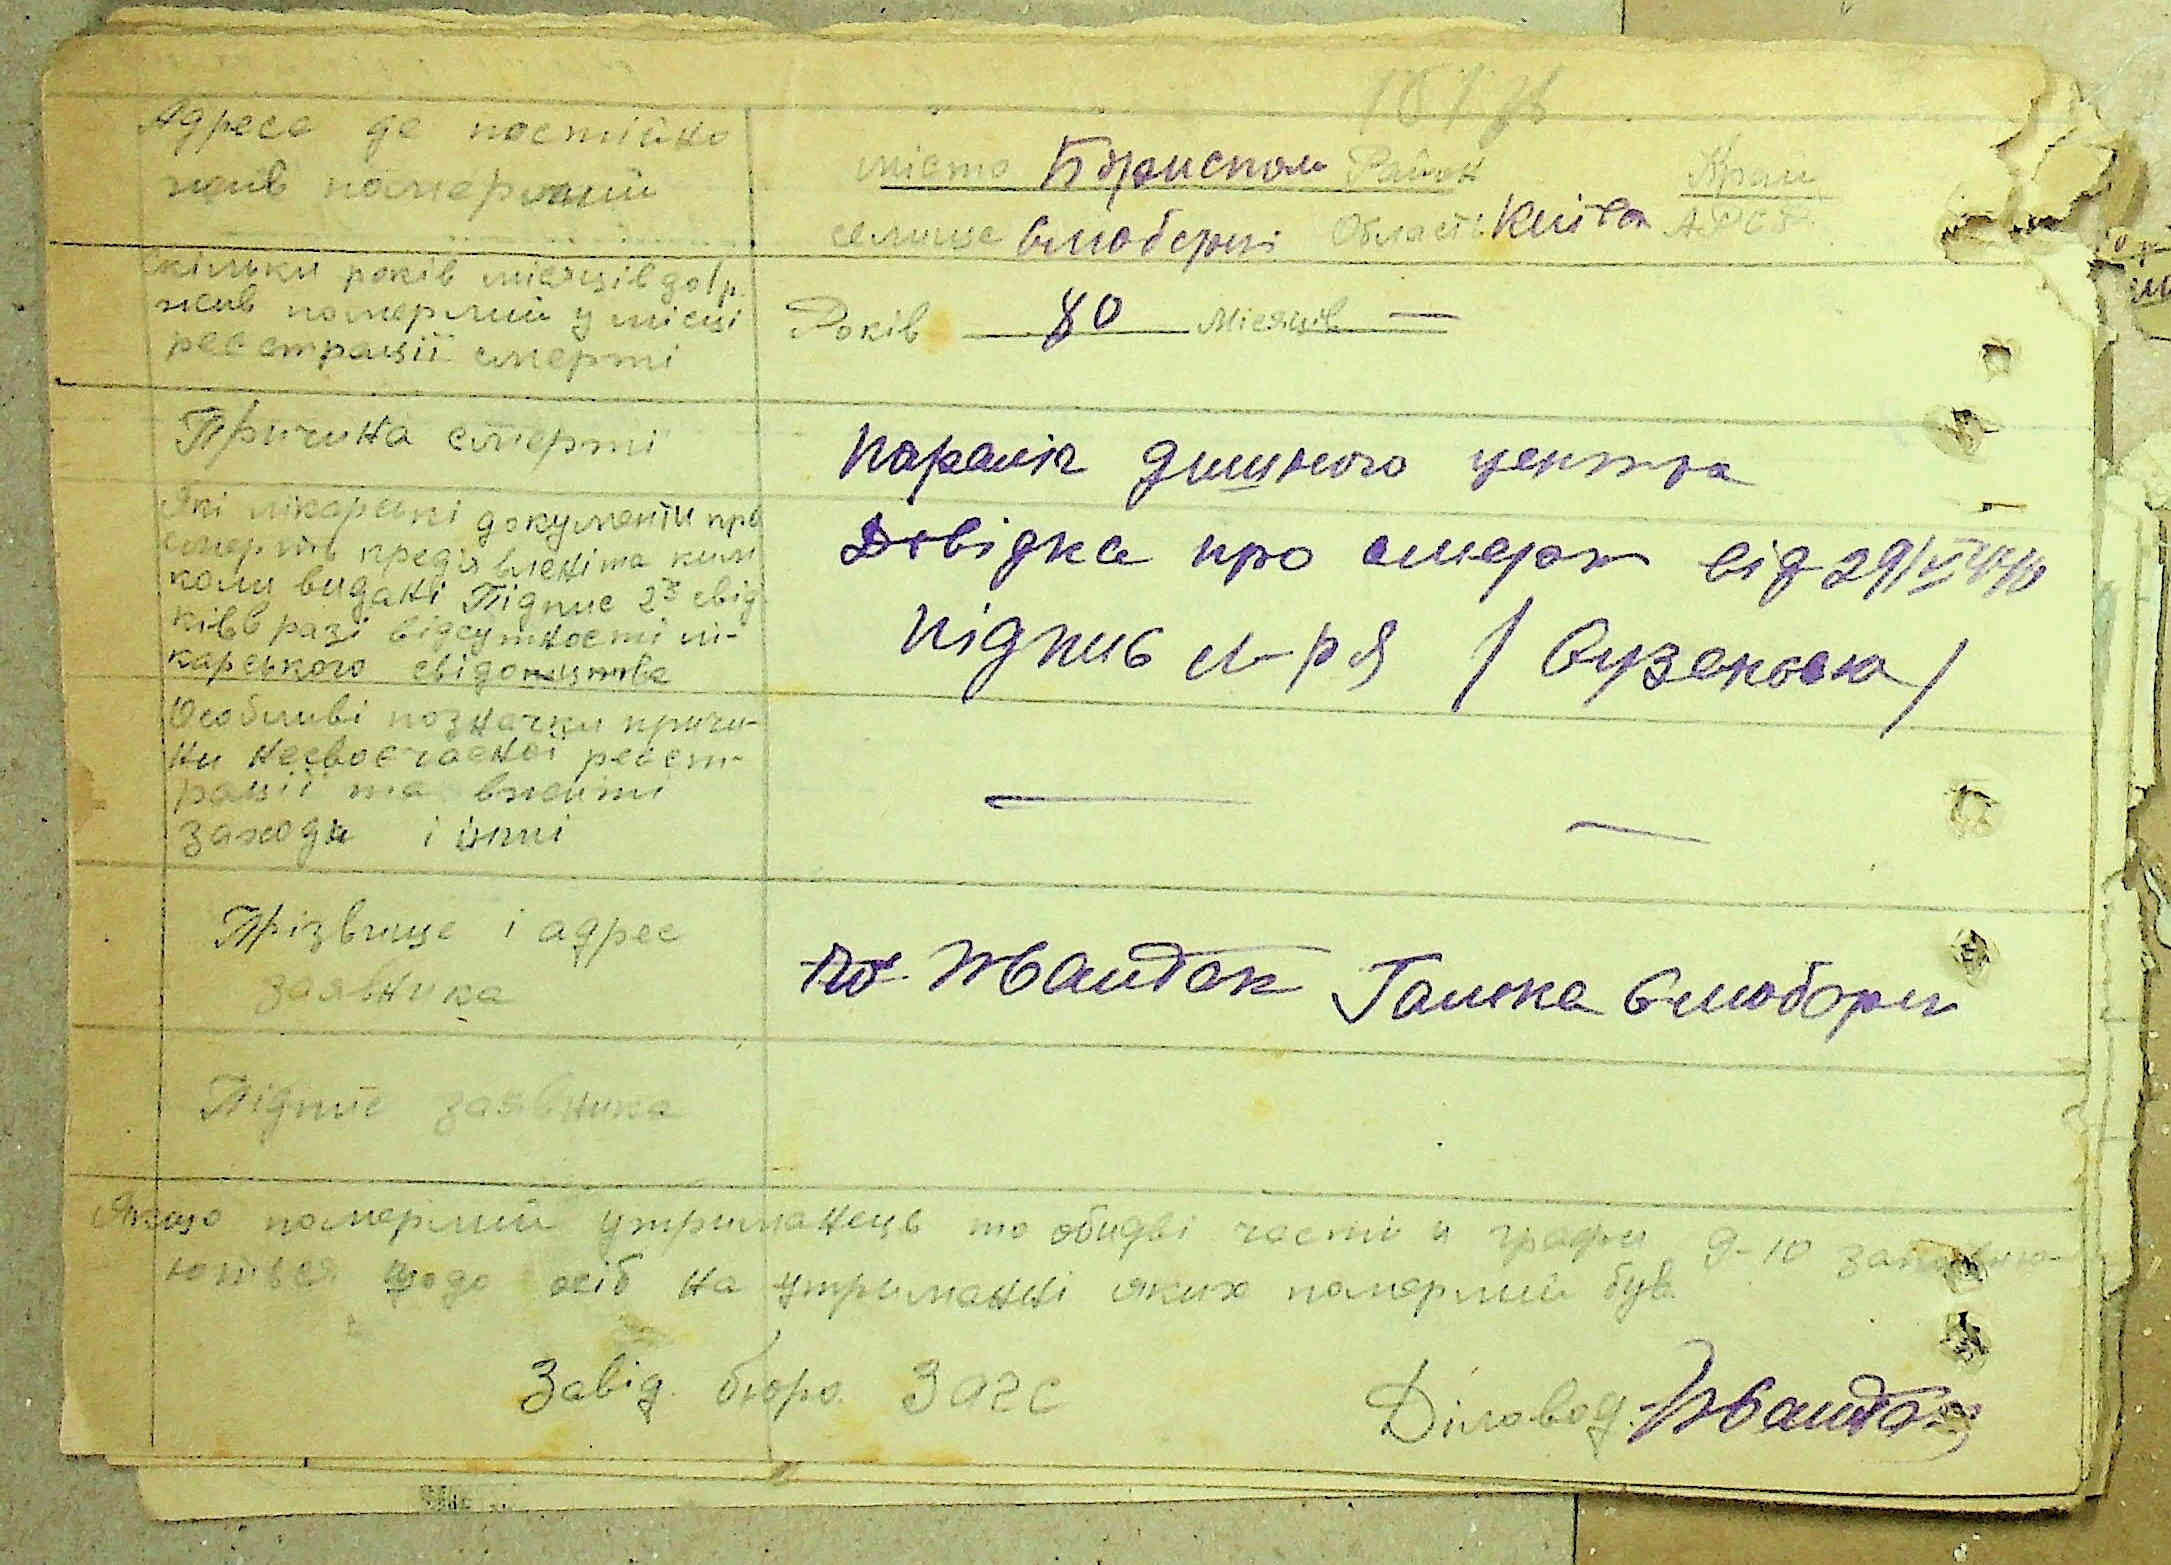 Адреса де постійно
жив померший
місто Бориспол Район Край
селище Вшоберні Область Київськ АРСР
скільки років місяців до/р.
жив померший у місці
реєстрації смерті
Років 80 Місяців —
Причина смерті
Параліч дишного центра
Які лікарські документи про
смерть предявлені та ким
коли видані Підпис 2х свід
ків в разі відсутності лі-
карського свідоцтва
Довідка про смерть від 29/
Підпис л-ря / /
Особливі позначки причи-
ни несвоєчасної реєст-
рації та вжиті
заходи і інші
— —
Прізвище і адрес
заявника
Галька
Підпис заявника
Якщо померший утриманець то обидві часті и графи 9-10 заповню-
ються щодо осіб на утриманні яких померший був
Завід. бюро ЗАГС
Діловод.